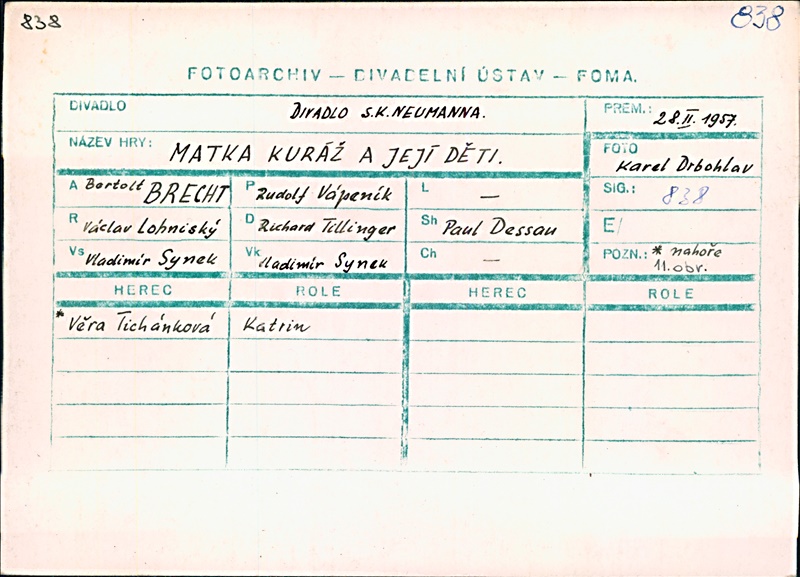 838
838
FOTOARCHIV — DIVADELNÍ ÚSTAV — FOMA.
DIVADLO DIVADLO S.K. NEUMANNA.
PREM.: 28.II. 1957.
NÁZEV HRY: MATKA KURÁŽ A JEJÍ DĚTI.
FOTO Karel Drbohlav
A Bertolt BRECHT
P Rudolf Vápeník
L —
SIG.: 838
R Václav Lohniský
D Richard Tillinger
Sh Paul Dessau
E/
Vs Vladimír Synek
Vk Vladimír Synek
Ch —
POZN.: * nahoře
11. obr.
HEREC ROLE HEREC ROLE
* Věra Tichánková Katrin